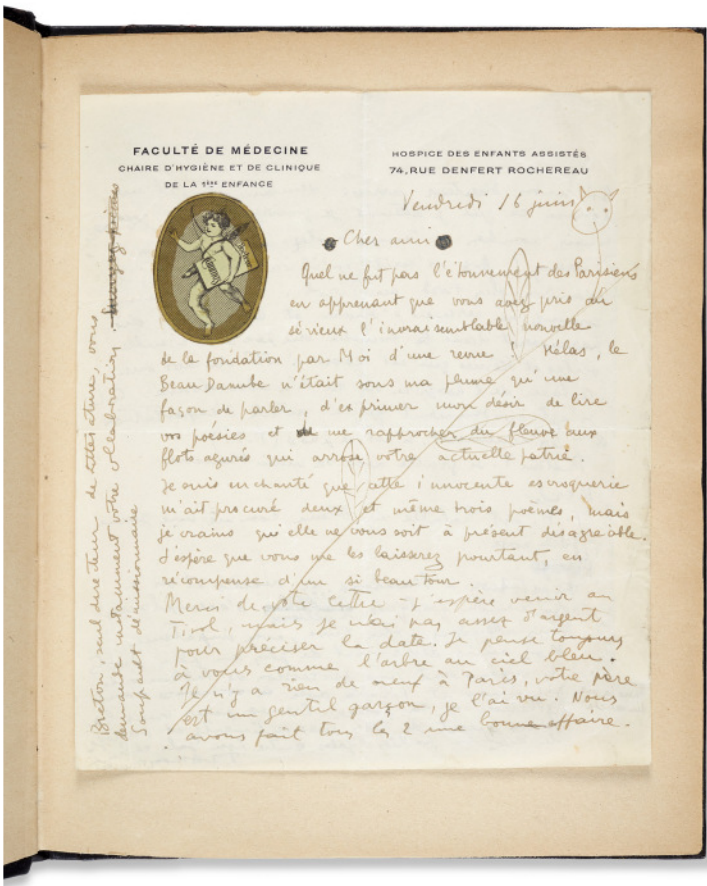 FACULTÉ DE MÉDECINE
CHAIRE D'HYGIÈNE ET DE CLINIQUE
DE LA 1ÈRE ENFANCE
HOSPICE DES ENFANTS ASSISTÉS
74, RUE DENFERT ROCHEREAU
Vendredi 16 juin
Cher ami
Quel ne fut pas l'étonnement des Parisiens
en apprenant que vous avez pris au
sérieux l'invraisemblable nouvelle
de la fondation par Moi d'une revue ! Hélas, le
Beau Danube n'était sous ma plume qu'une
façon de parler, d'exprimer mon désir de lire
vos poésies et me rapprocher du fleuve aux
flots azurés qui arrose votre actuelle patrie.
Je suis enchanté que cette innocente escroquerie
m'ait procuré deux et même trois poèmes, mais
je crains qu'elle ne vous soit à présent désagréable.
J'espère que vous me les laisserez pourtant, en
récompense d'un si beau tour.
Merci de votre lettre - j'espère venir au
Tirol, mais je n'ai pas assez d'argent
pour préciser la date. Je pense toujours
à vous comme l'arbre au ciel bleu.
Il n'y a rien de neuf à Paris, votre père
est un gentil garçon, je l'ai vu. Nous
avons fait tous les 2 une bonne affaire.
Breton, seul directeur de Littérature, vous
demande instamment votre collaboration.
Soupault démissionnaire